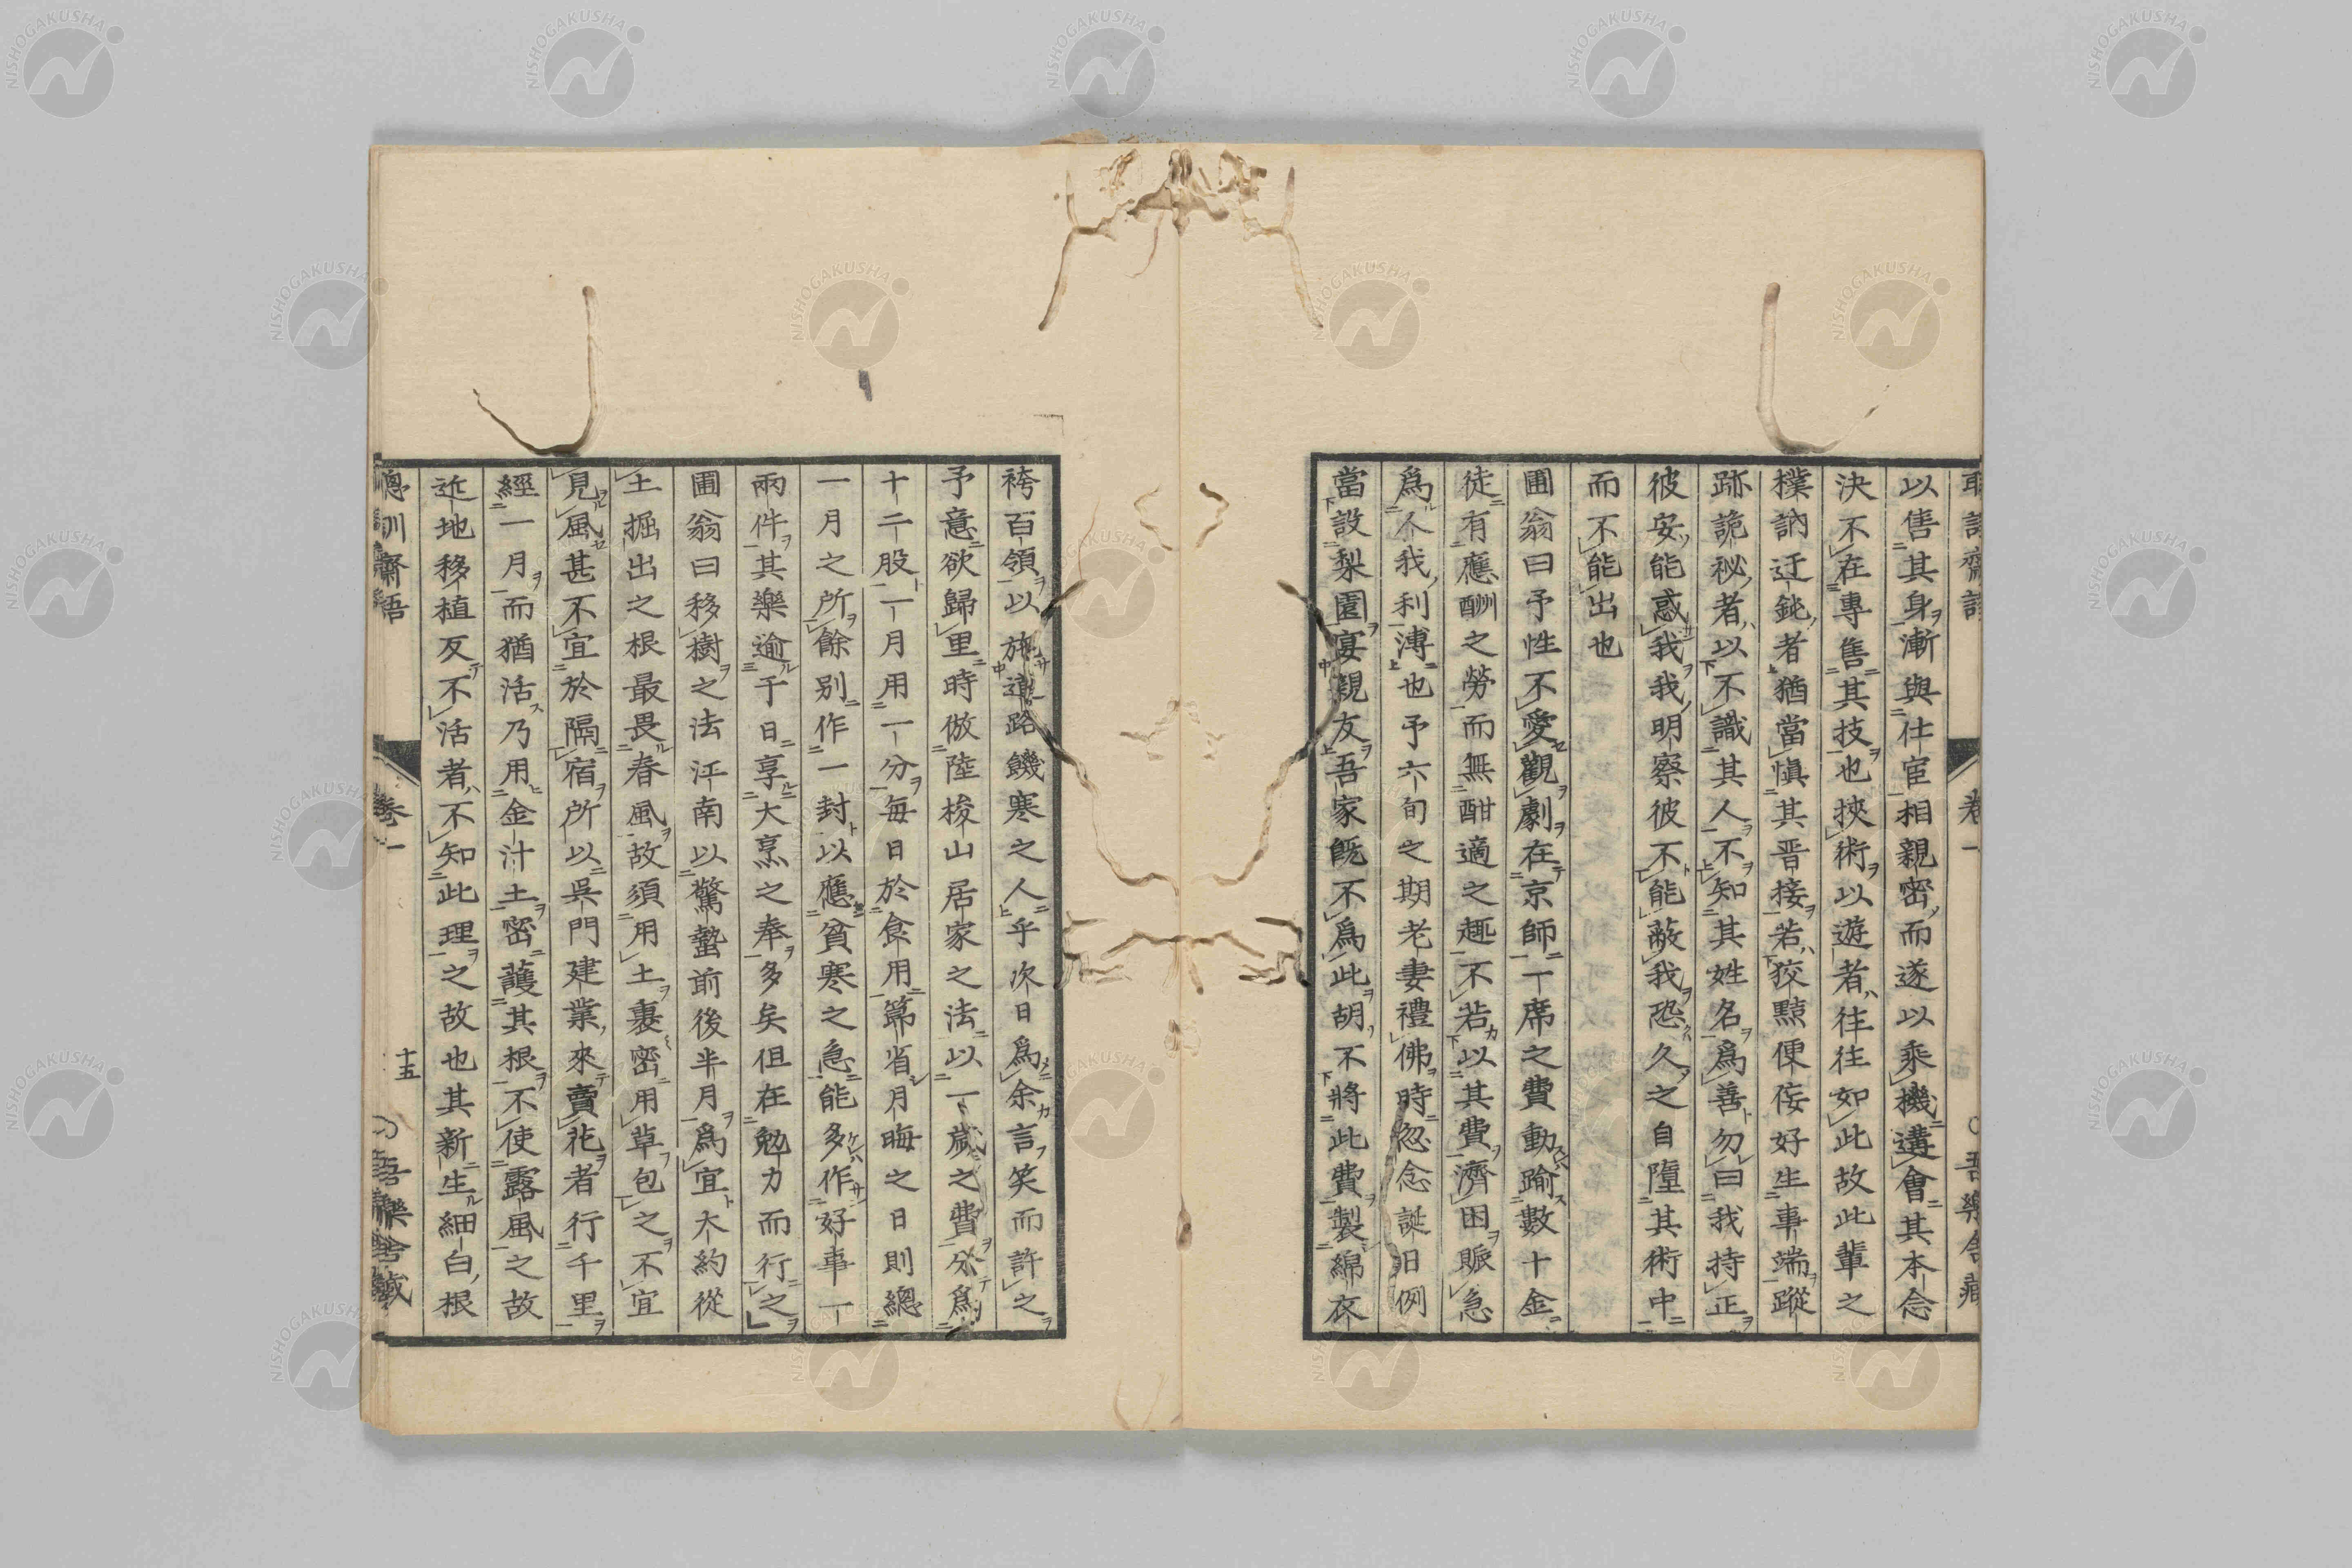 以售其身漸與仕宦相親密而遂以乘機遘會其本念
決不在專售其技也挾術以遊者往往如此故此輩之
樸訥迂鈍者猶當愼其晋接若狡黠便侫好生事端蹤
跡詭祕者以不識其人不知其姓名爲善勿曰我持正
彼安能惑我我明察彼不能蔽我恐久之自墮其術中
而不能出也
圃翁曰予性不愛觀劇在京師一席之費動踰數十金
徒有應酬之勞而無酣適之趣不若以其費濟困賑急
爲人我利溥也予六旬之期老妻禮佛時忽念誕日例
當設梨園宴親友吾家既不爲此胡不將此費製綿衣
袴百領以施道路饑寒之人乎次日爲余言笑而許之
予意欲歸里時倣陸梭山居家之法以一歲之費分爲
十二股一月用一分每日於食用節省月晦之日則總
一月之所餘別作一封以應貧寒之急能多作好事一
兩件其樂逾于日享大烹之奉多矣但在勉力而行之
圃翁曰移樹之法江南以驚蟄前後半月爲宜大約從
土掘出之根最畏春風故須用土裹密用草包之不宜
見風甚不宜於隔宿所以吳門建業來賣花者行千里
經一月而猶活乃用金汁土密護其根不使露風之故
近地移植反不活者不知此理之故也其新生細白根
聰訓齋語
卷一
十五
吾樂舍藏